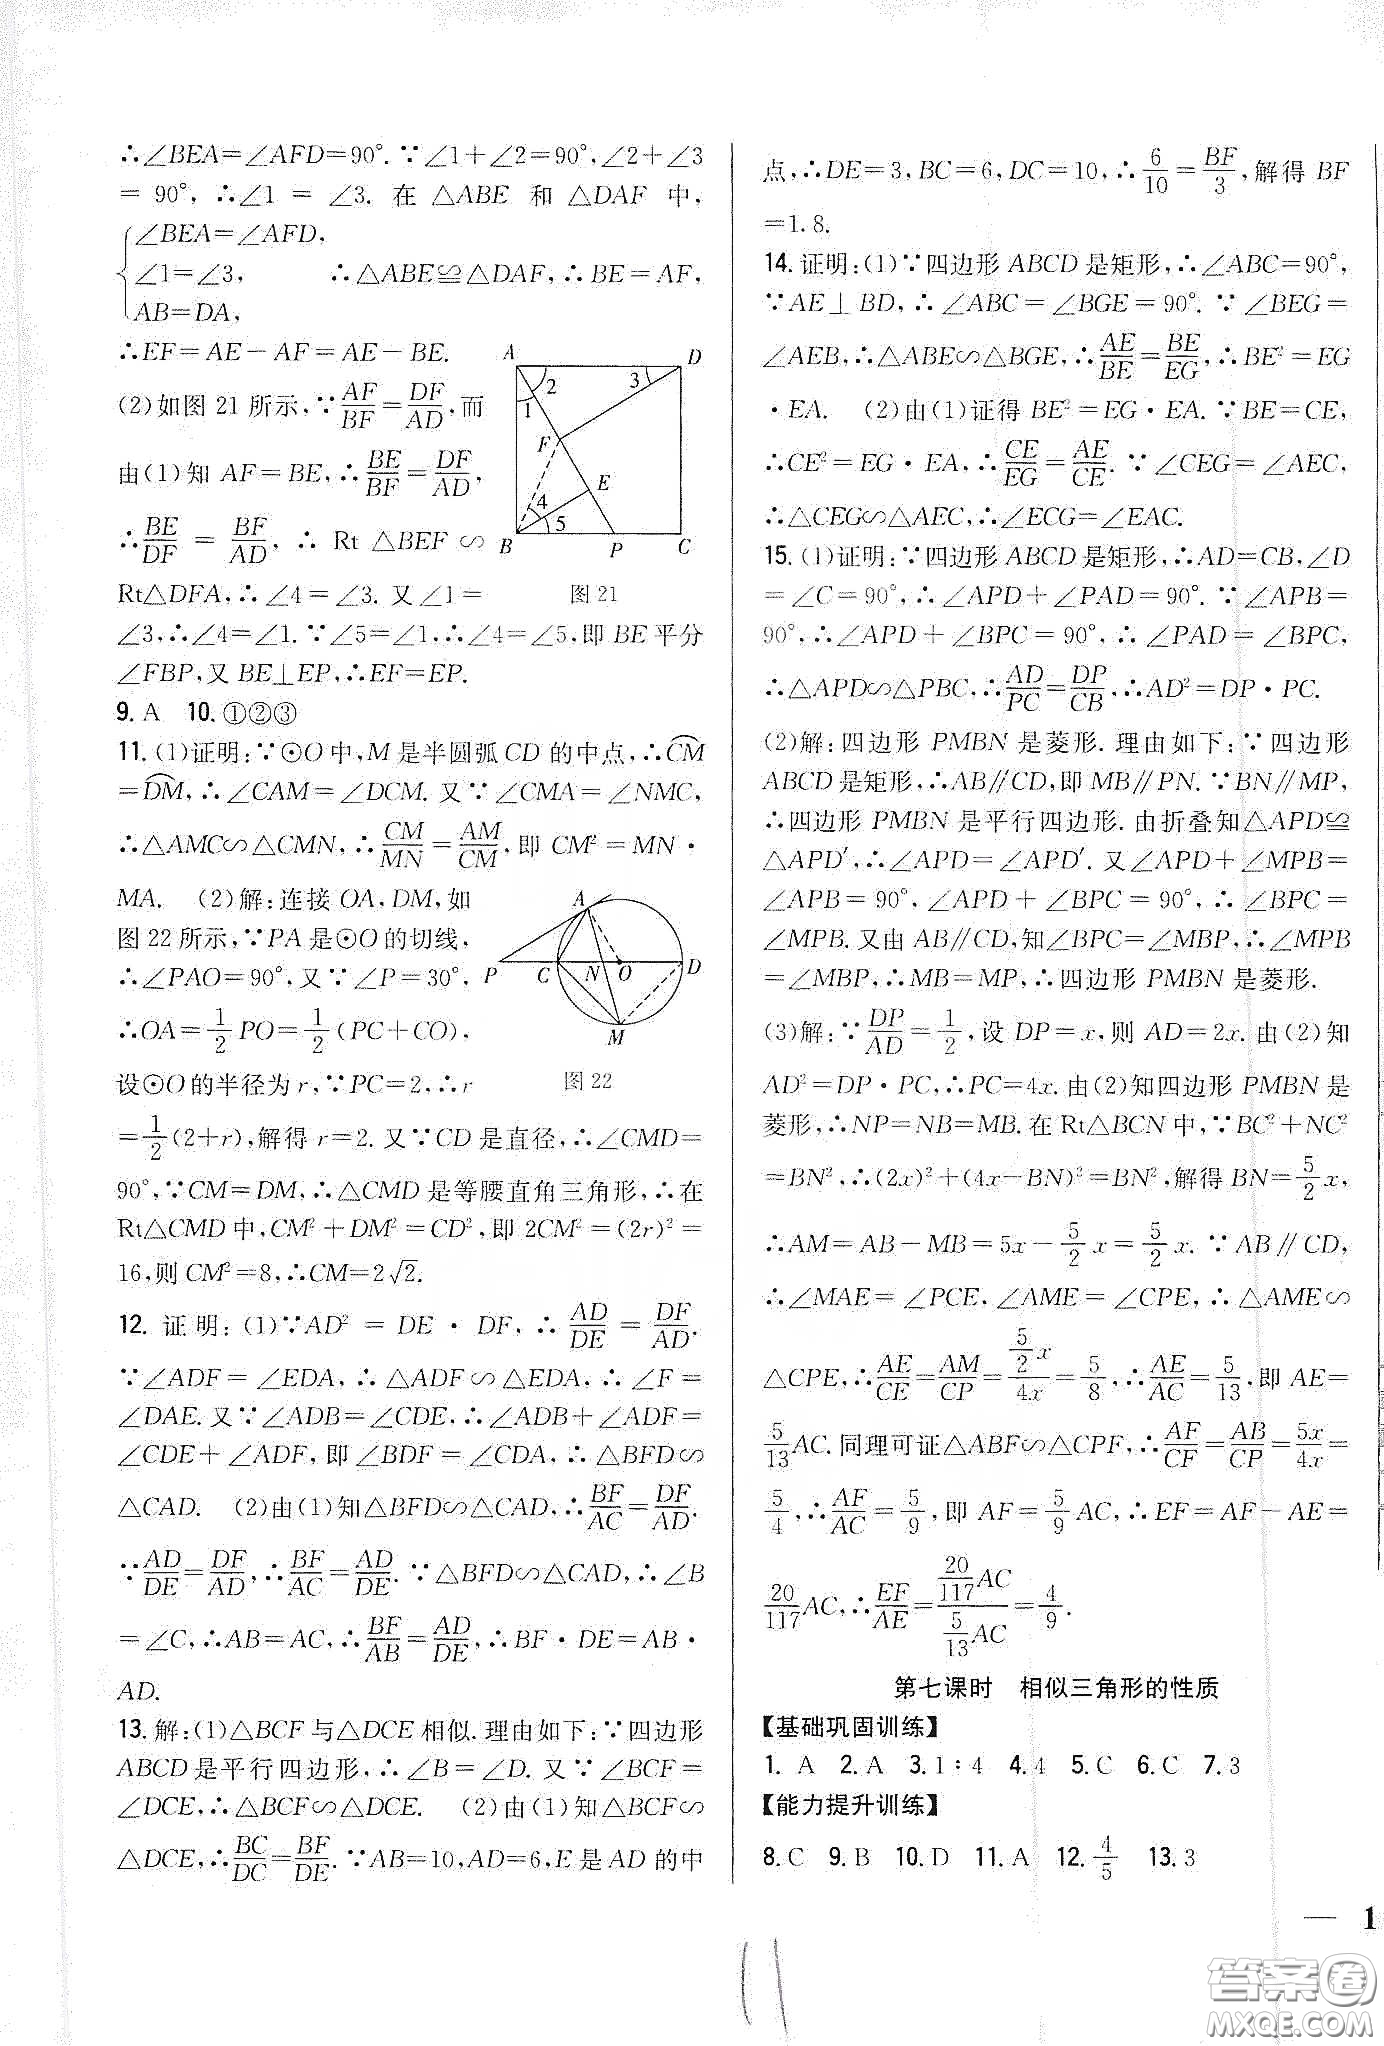 ∴∠BEA=∠AFD=90°. ∵∠1+∠2=90°,∠2+∠3
=90°,∴∠1=∠3. 在△ABE和△DAF中,
{∠BEA=∠AFD,
∠1=∠3,
AB=DA,
∴△ABE≌△DAF,∴BE=AF,
∴EF=AE-AF=AE-BE.
(2)如图21所示,∵AF/BF=DF/AD,而
由(1)知AF=BE,∴BE/BF=DF/AD,
∴BE/DF=BF/AD,∴Rt△BEF∽
Rt△DFA,∴∠4=∠3. 又∠1=
∠3,∴∠4=∠1. ∵∠5=∠1,∴∠4=∠5,即BE平分
∠FBP,又BE⊥EP,∴EF=EP.
A D 2 3 1 F E 4 5 B P C
图21
9. A 10. ①②③
11. (1)证明:∵⊙O中,M是半圆弧CD的中点,∴⌒CM
=⌒DM,∴∠CAM=∠DCM. 又∵∠CMA=∠NMC,
∴△AMC∽△CMN,∴CM/MN=AM/CM,即CM²=MN·
MA. (2)解:连接OA,DM,如
图22所示,∵PA是⊙O的切线,
∴∠PAO=90°,又∵∠P=30°,
∴OA=1/2PO=1/2(PC+CO),
设⊙O的半径为r,∵PC=2,∴r
A P C N O D M
图22
=1/2(2+r),解得r=2. 又∵CD是直径,∴∠CMD=
90°,∵CM=DM,∴△CMD是等腰直角三角形,∴在
Rt△CMD中,CM²+DM²=CD²,即2CM²=(2r)²=
16,则CM²=8,∴CM=2√2.
12. 证明:(1)∵AD²=DE·DF,∴AD/DE=DF/AD.
∵∠ADF=∠EDA,∴△ADF∽△EDA,∴∠F=
∠DAE. 又∵∠ADB=∠CDE,∴∠ADB+∠ADF=
∠CDE+∠ADF,即∠BDF=∠CDA,∴△BFD∽
△CAD. (2)由(1)知△BFD∽△CAD,∴BF/AC=DF/AD.
∵AD/DE=DF/AD,∴BF/AC=AD/DE. ∵△BFD∽△CAD,∴∠B
=∠C,∴AB=AC,∴BF/AB=AD/DE,∴BF·DE=AB·
AD.
13. 解:(1)△BCF与△DCE相似.理由如下:∵四边形
ABCD是平行四边形,∴∠B=∠D. 又∵∠BCF=
∠DCE,∴△BCF∽△DCE. (2)由(1)知△BCF∽
△DCE,∴BC/DC=BF/DE. ∵AB=10,AD=6,E是AD的中
点,∴DE=3,BC=6,DC=10,∴6/10=BF/3,解得BF
=1.8.
14. 证明:(1)∵四边形ABCD是矩形,∴∠ABC=90°,
∵AE⊥BD,∴∠ABC=∠BGE=90°. ∵∠BEG=
∠AEB,∴△ABE∽△BGE,∴AE/BE=BE/EG,∴BE²=EG
·EA. (2)由(1)证得BE²=EG·EA. ∵BE=CE,
∴CE²=EG·EA,∴CE/EG=AE/CE. ∵∠CEG=∠AEC,
∴△CEG∽△AEC,∴∠ECG=∠EAC.
15. (1)证明:∵四边形ABCD是矩形,∴AD=CB,∠D
=∠C=90°,∴∠APD+∠PAD=90°. ∵∠APB=
90°,∴∠APD+∠BPC=90°,∴∠PAD=∠BPC,
∴△APD∽△PBC,∴AD/PC=DP/CB,∴AD²=DP·PC.
(2)解:四边形PMBN是菱形.理由如下:∵四边形
ABCD是矩形,∴AB∥CD,即MB∥PN. ∵BN∥MP,
∴四边形PMBN是平行四边形.由折叠知△APD≌
△APD′,∴∠APD=∠APD′. 又∠APD+∠MPB=
∠APB=90°,∠APD+∠BPC=90°,∴∠BPC=
∠MPB. 又由AB∥CD,知∠BPC=∠MBP,∴∠MPB
=∠MBP,∴MB=MP,∴四边形PMBN是菱形.
(3)解:∵DP/AD=1/2,设DP=x,则AD=2x. 由(2)知
AD²=DP·PC,∴PC=4x. 由(2)知四边形PMBN是
菱形,∴NP=NB=MB. 在Rt△BCN中,∵BC²+NC²
=BN²,∴(2x)²+(4x-BN)²=BN²,解得BN=5/2x,
∴AM=AB-MB=5x-5/2x=5/2x. ∵AB∥CD,
∴∠MAE=∠PCE,∠AME=∠CPE,∴△AME∽
△CPE,∴AE/CE=AM/CP=(5/2x)/4x=5/8,∴AE/AC=5/13,即AE=
5/13AC. 同理可证△ABF∽△CPF,∴AF/CF=AB/CP=5x/4x=
5/4,∴AF/AC=5/9,即AF=5/9AC,∴EF=AF-AE=
20/117AC,∴EF/AE=(20/117AC)/(5/13AC)=4/9.
第七课时 相似三角形的性质
【基础巩固训练】
1. A 2. A 3. 1∶4 4. 4 5. C 6. C 7. 3
【能力提升训练】
8. C 9. B 10. D 11. A 12. 4/5 13. 3
— 1
11
答案卷
MXQE.COM